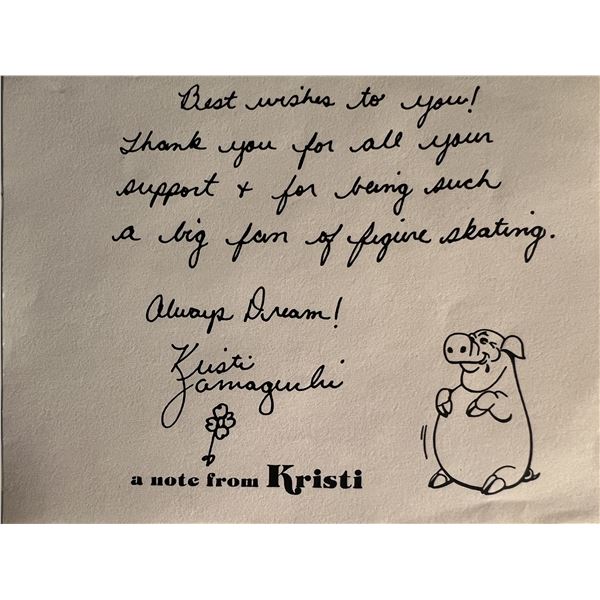 Best wishes to you!
Thank you for all your
support & for being such
a big fan of figure skating.
Always Dream!
Kristi
Yamaguchi
a note from Kristi